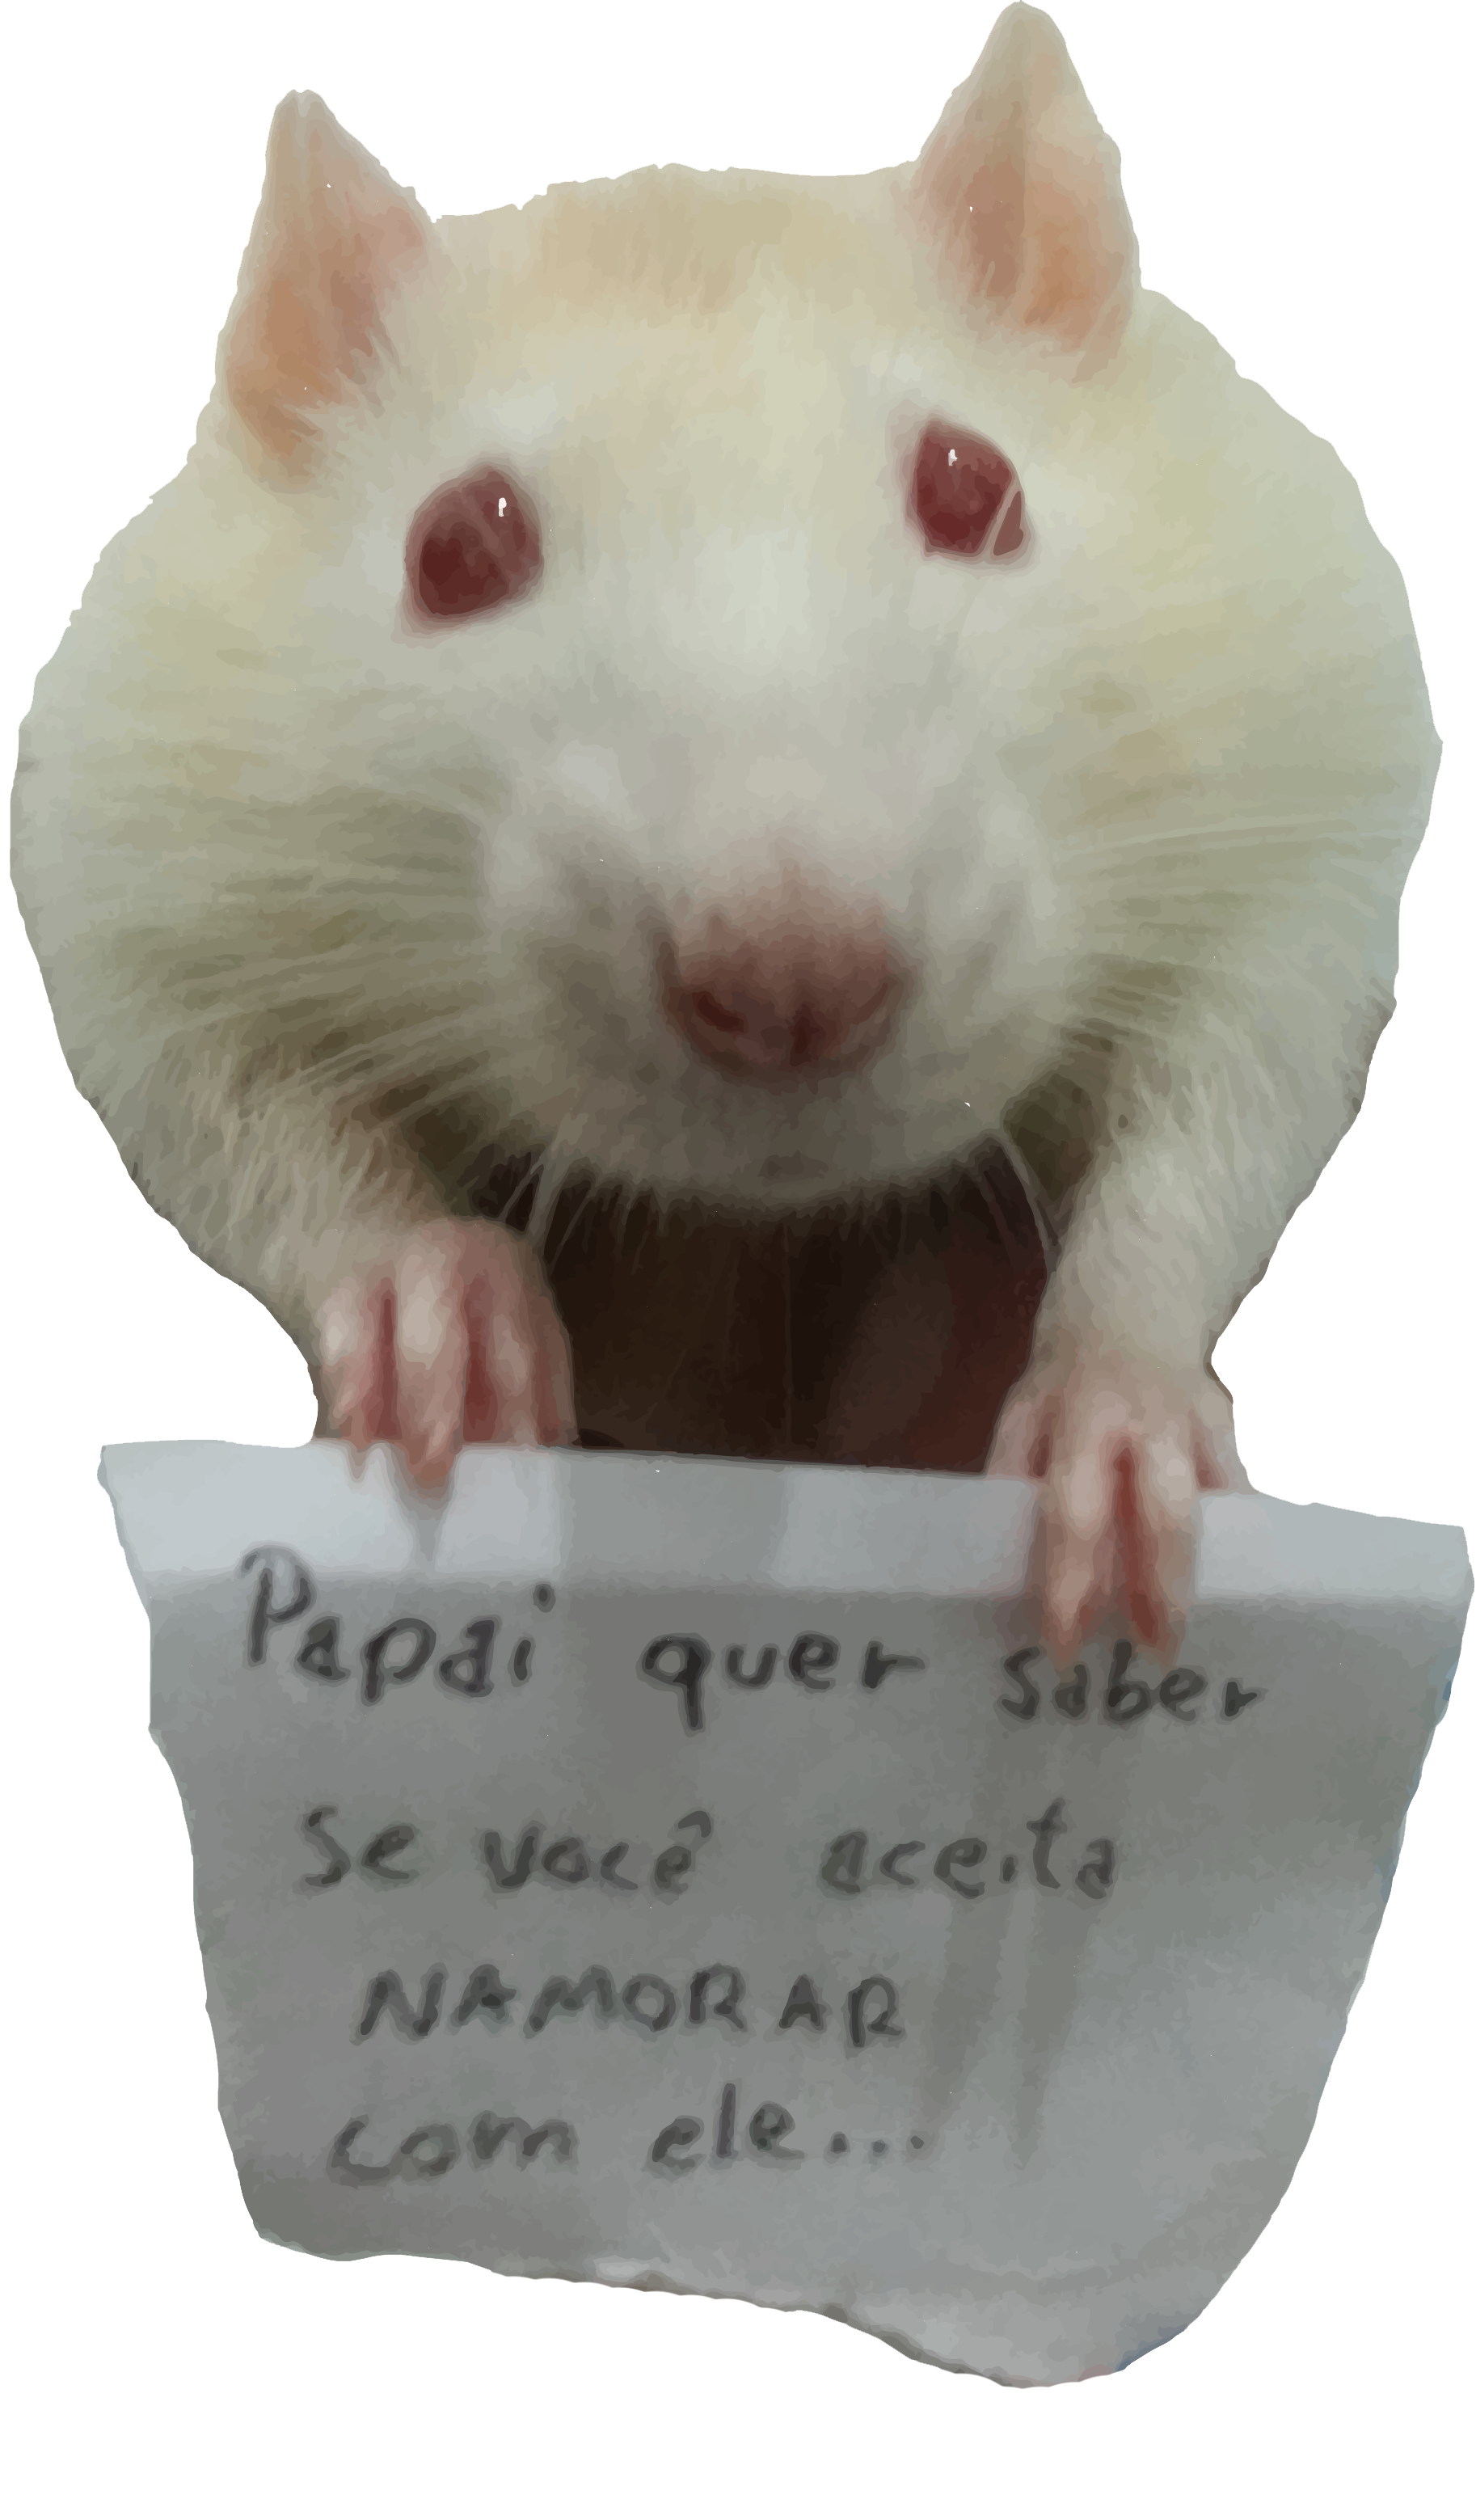 Papai quer saber
Se você aceita
NAMORAR
com ele...